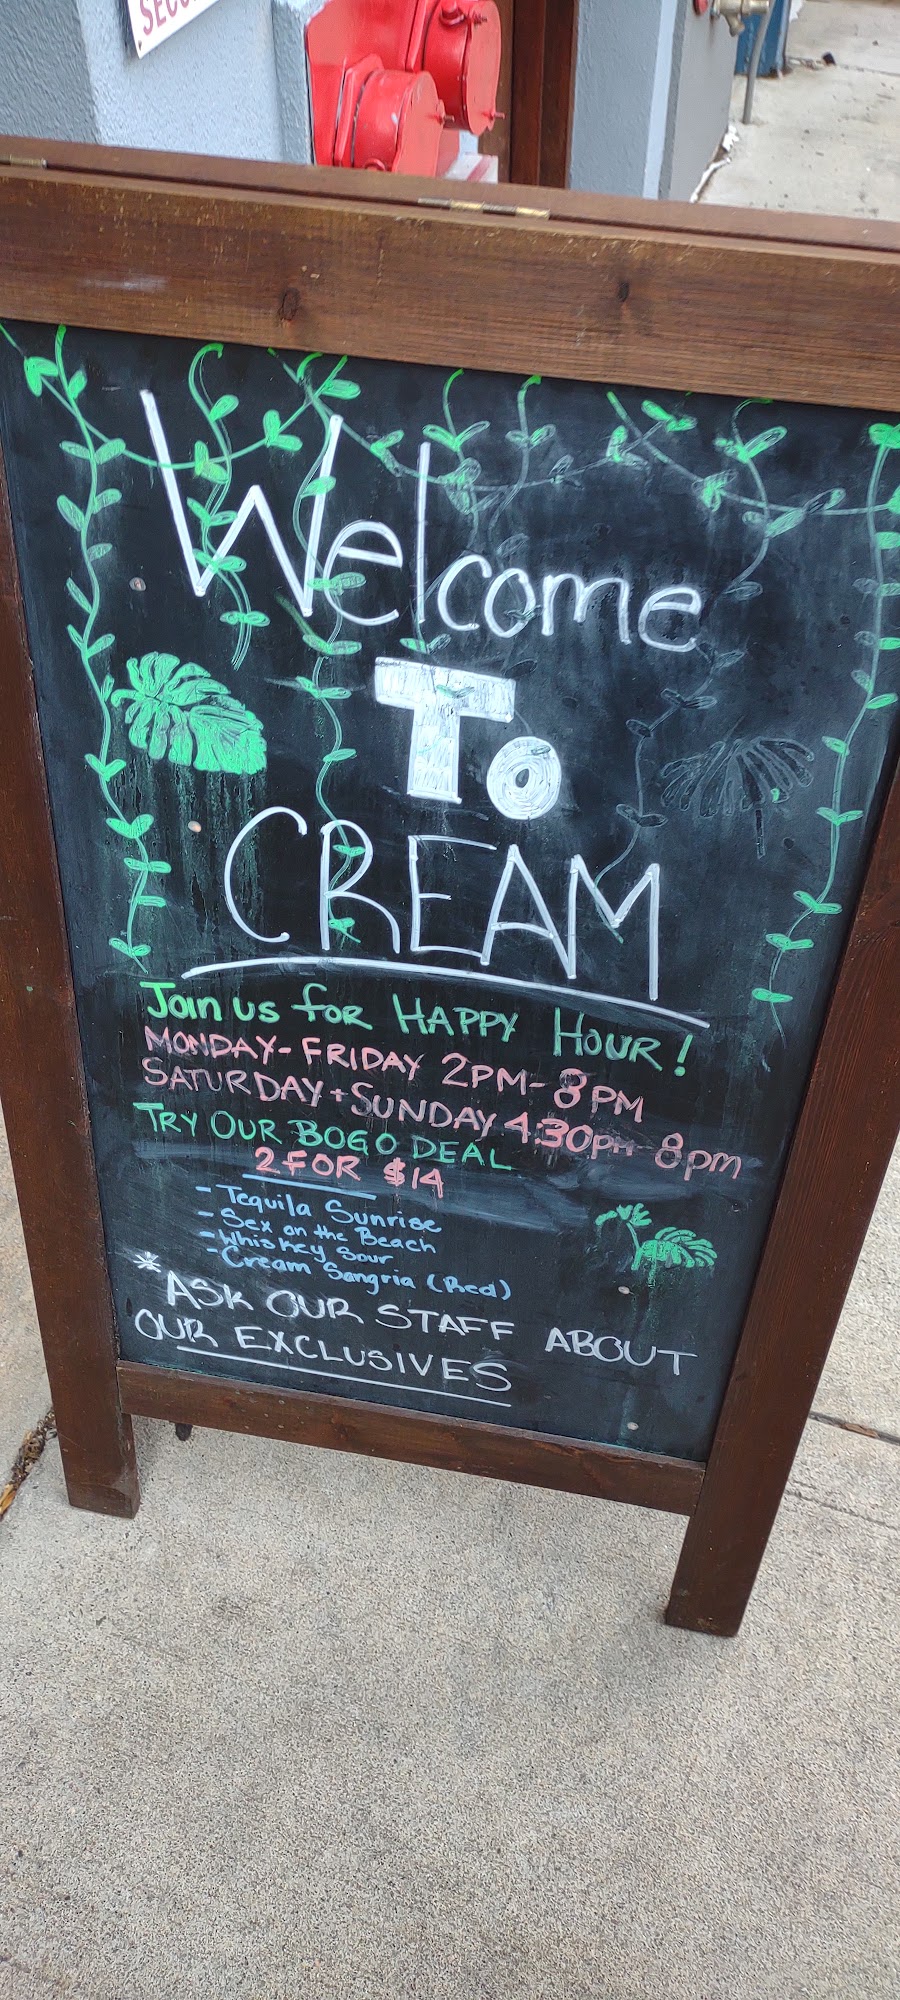 Welcome
To
CREAM
Join us for HAPPY HOUR!
MONDAY - FRIDAY 2PM - 8PM
SATURDAY + SUNDAY 4:30pm - 8pm
TRY OUR BOGO DEAL
2 FOR $14
- Tequila Sunrise
- Sex on the Beach
- Whiskey Sour
- Cream Sangria (Red)
* ASK OUR STAFF ABOUT
OUR EXCLUSIVES